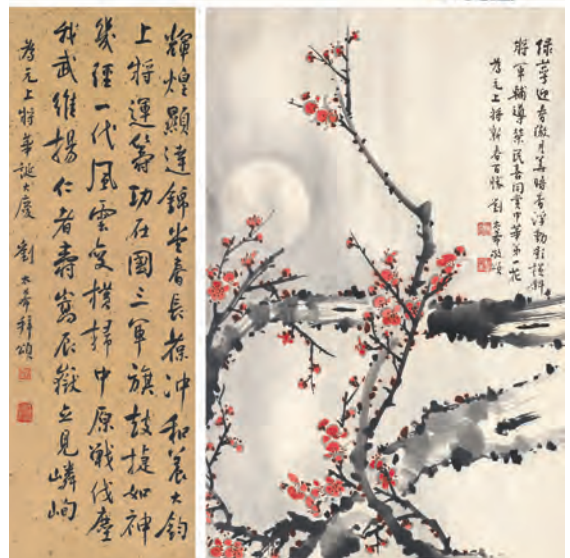 輝煌顯達錦堂春長葆沖和養大鈞
上將運籌功在國三軍旗鼓捷如神
幾經一代風雲變橫掃中原戰伐塵
我武維揚仁者壽嵩辰嶽立見嶙峋
為元上將華誕大慶 劉太希拜頌
綠萼迎春徹月華暗香浮動影橫斜
將軍輔導榮民喜同賞中華第一花
為元上將新春百勝 劉太希敬頌